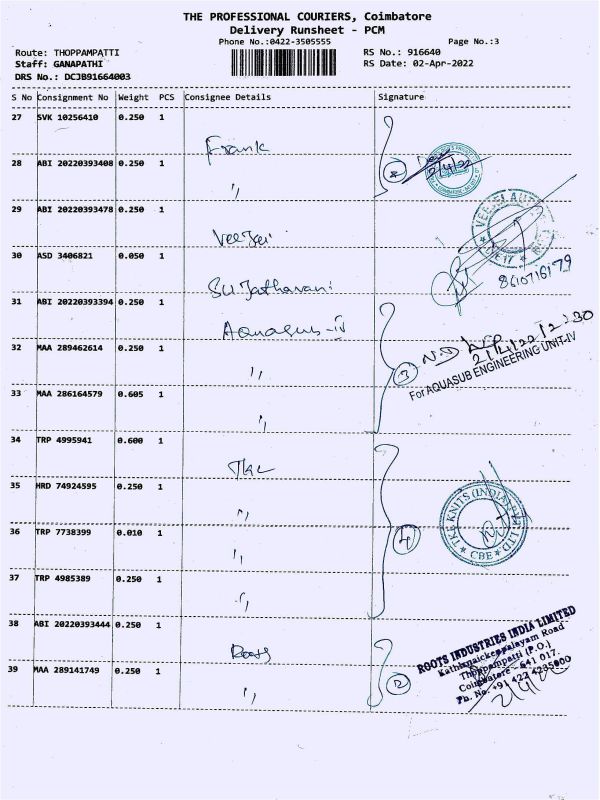 THE PROFESSIONAL COURIERS, Coimbatore
Delivery Runsheet - PCM
Phone No.:0422-3505555
Page No.:3
Route: THOPPAMPATTI
RS No.: 916640
Staff: GANAPATHI
RS Date: 02-Apr-2022
DRS No.: DCJB91664003
S No Consignment No Weight PCS Consignee Details Signature
27 SVK 10256410 0.250 1 Frank
28 ABI 20220393408 0.250 1 "
2/4/22
29 ABI 20220393478 0.250 1 VeeJai
30 ASD 3406821 0.050 1 SUJatharani
8610716179
31 ABI 20220393394 0.250 1 Aquasub-IV
32 MAA 289462614 0.250 1 "
3
For AQUASUB ENGINEERING UNIT-IV
33 MAA 286164579 0.605 1 "
34 TRP 4995941 0.600 1 TKL
35 HRD 74924595 0.250 1 "
TKE KNITS (INDIA) PVT LTD
CBE
36 TRP 7738399 0.010 1 "
4
37 TRP 4985389 0.250 1 "
38 ABI 20220393444 0.250 1 Roots
39 MAA 289141749 0.250 1 "
2
ROOTS INDUSTRIES INDIA LIMITED
Kathirnaickenpalayam Road
Thoppampatti (P.O.)
Coimbatore - 641 017.
Ph. No. +91 422 4235000